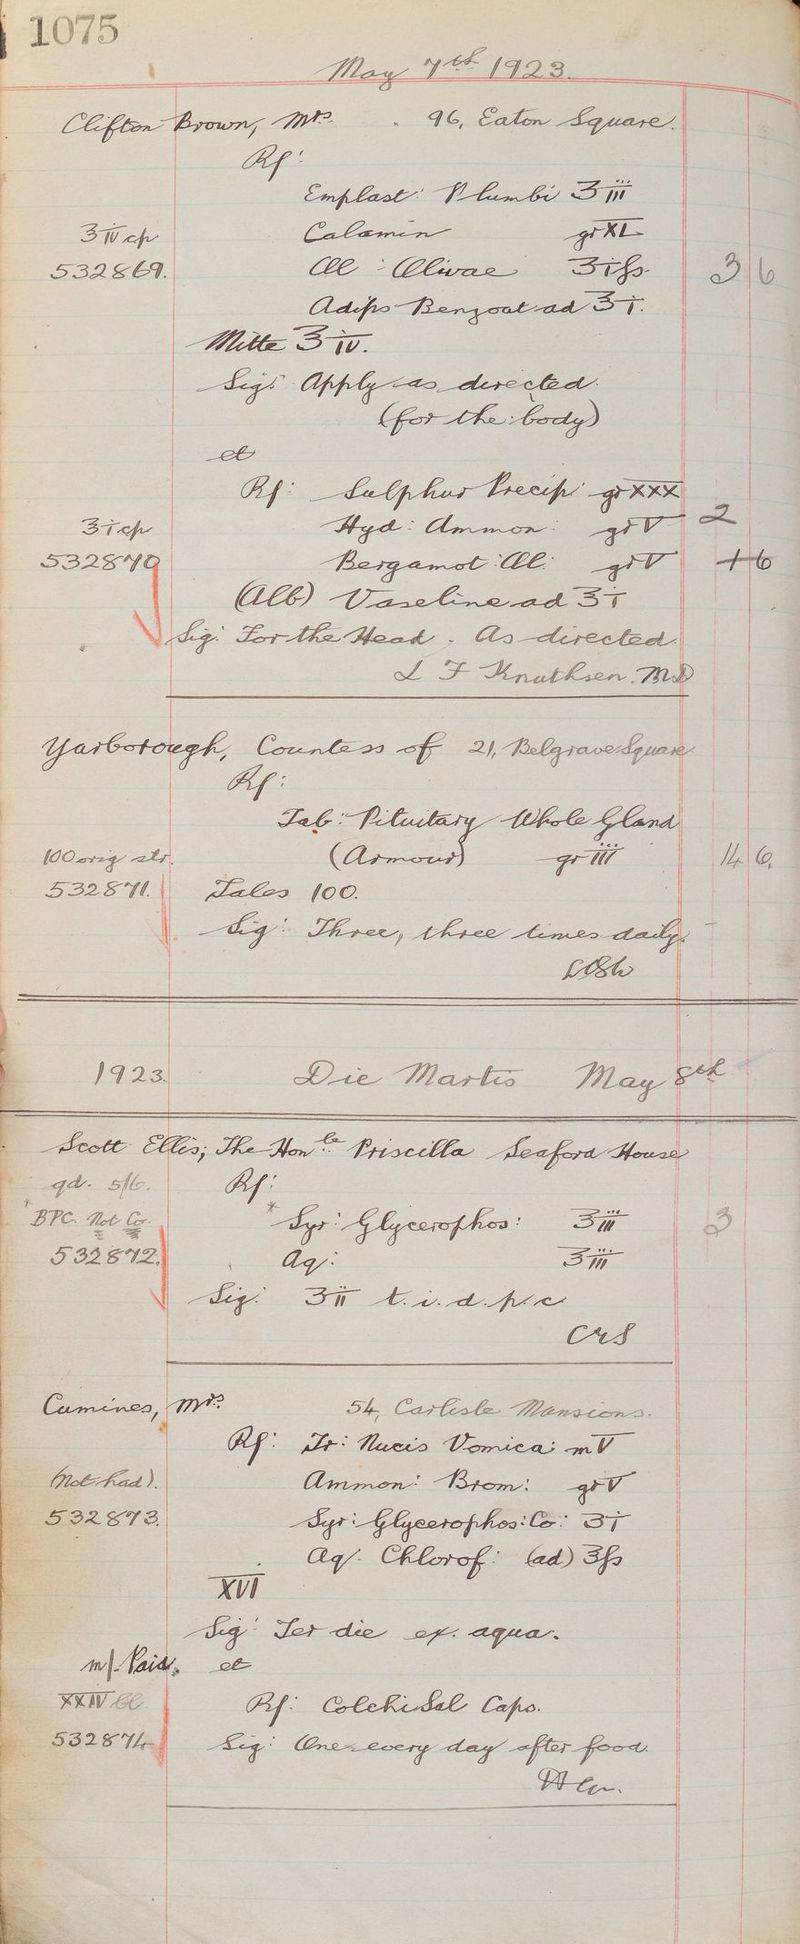 1075
May 7th 1923.
Clifton Brown, Mrs. 96, Eaton Square.
Rf:
Emplast: Plumbi ʒiii
ʒiv cp Calamin grXL
532869. Ol: Olivae ʒifs. 3 6
Adips Benzoat ad ʒi.
Mitte ʒiv.
Sig: Apply as directed.
(for the body)
et
Rf: Sulphur Precip: grXXX
ʒi cp Hyd: Ammon: grV 2
532870 Bergamot: Ol: grV 6
(Alb) Vaseline ad ʒi
Sig: For the Head. As directed.
L F Knuthsen. MD
Yarborough, Countess of 21, Belgrave Square
Rf:
Tab: Pituitary Whole Gland
100 orig str. (Armour) gr iii 14 6.
532871. Tales 100.
Sig: Three, three times daily.
1923. Die Martis May 8th
Scott Ellis; The Honble Priscilla Seaford House
qd. 5/6. Rf:
*BPC. Not Co. *Syr: Glycerophos: ʒiii 3
532872. Aq: ʒiii
Sig: ʒii t.i.d.p.c
CRS
Cumines, Mrs. 54, Carlisle Mansions.
Rf: Tr: Nucis Vomica: mV
(Not had). Ammon: Brom: grV
532873. Syr: Glycerophos: Co: ʒi
Aq: Chlorof: (ad) ʒfs
XVI
Sig: Ter die ex. aqua.
m/- Paid. et
XXIV Rf: Colchi Sal Caps.
532874 Sig: One every day after food.